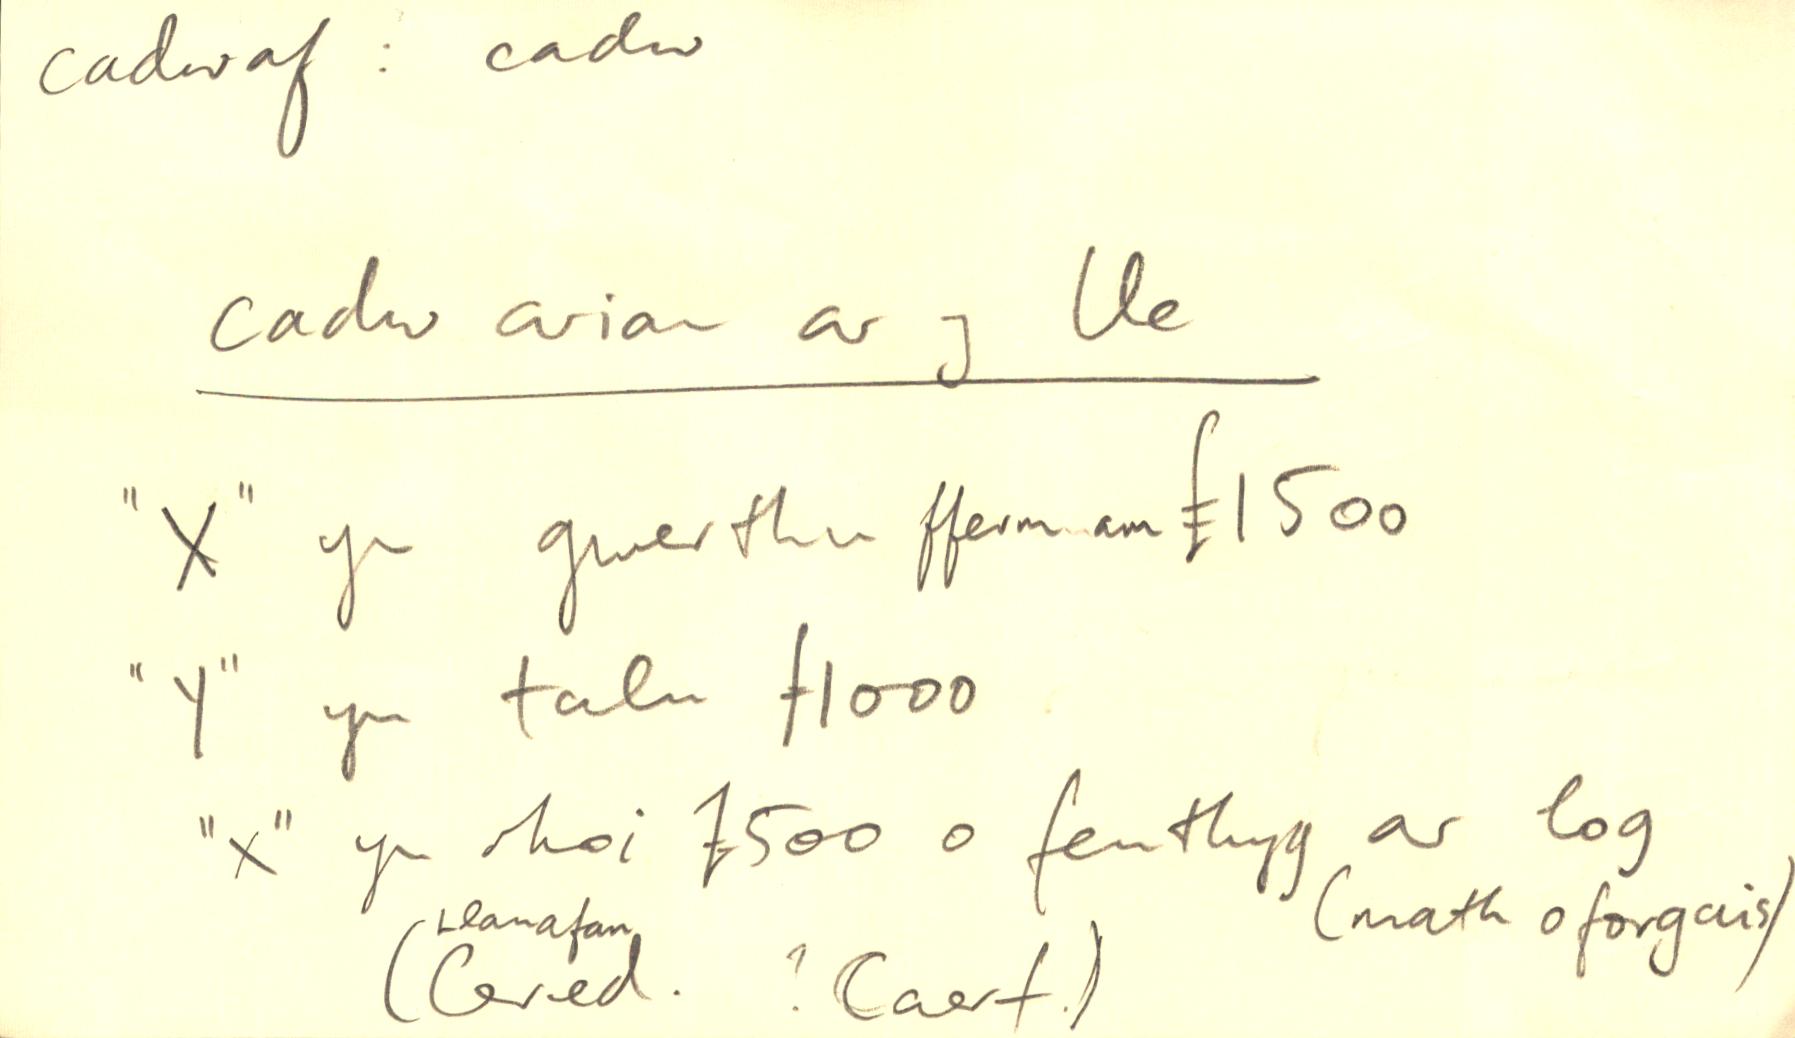 cadwaf : cadw
cadw arian ar y lle
"X" yn gwerthu fferm am £1500
"Y" yn talu £1000
"X" yn rhoi £500 o fenthyg ar log
(math o forgais)
(Llanafan
Cered. ? Caerf.)